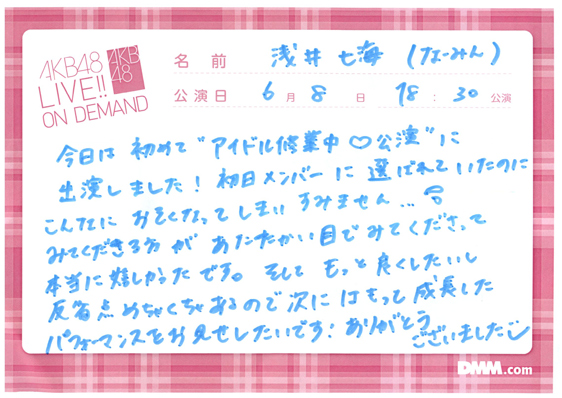 AKB48
LIVE!!
ON DEMAND
AKB
48
名前 浅井七海 (なーみん)
公演日 6月8日 18:30公演
今日は初めて"アイドル修業中♡公演"に
出演しました!初日メンバーに選ばれていたのに
こんなにおそくなってしまいすみません...
みてくださる方があたたかい目でみてくださって
本当に嬉しかったです。そしてもっと良くしたいし
反省点めちゃくちゃあるので次にはもっと成長した
パフォーマンスをお見せしたいです!ありがとう
ございました
DMM.com